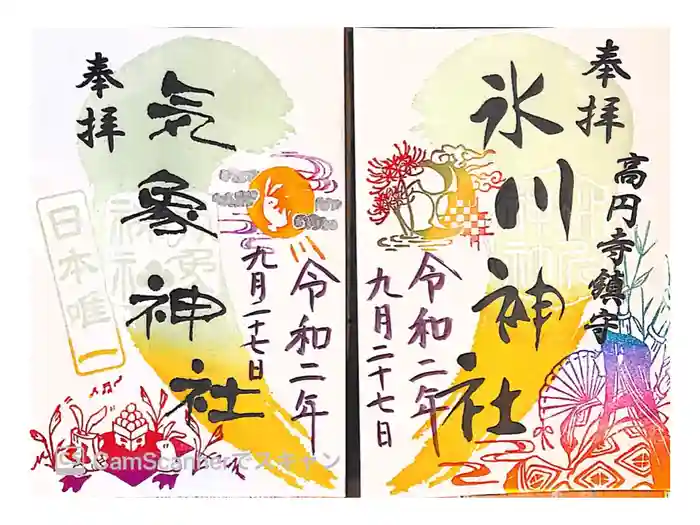 奉拝
高円寺鎮守
氷川神社
令和二年
九月二十七日
奉拝
気象神社
日本唯一
令和二年
九月二十七日
CamScannerでスキャン